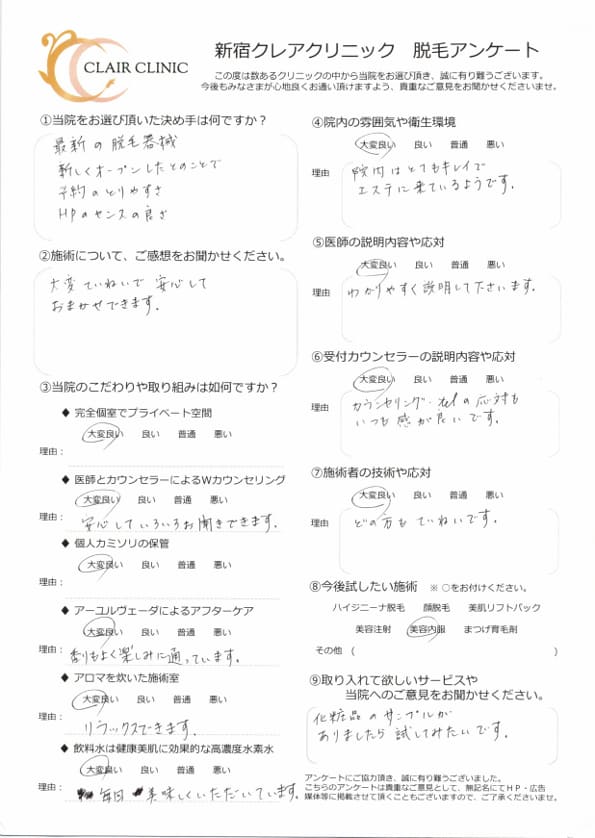 CLAIR CLINIC
新宿クレアクリニック 脱毛アンケート
この度は数あるクリニックの中から当院をお選び頂き、誠に有り難うございます。
今後もみなさまが心地良くお通い頂けますよう、貴重なご意見をお聞かせくださいませ。
①当院をお選び頂いた決め手は何ですか？
最新の脱毛器械
新しくオープンしたとのことで
予約のとりやすさ
HPのセンスの良さ
②施術について、ご感想をお聞かせください。
大変ていねいで安心して
おまかせできます。
③当院のこだわりや取り組みは如何ですか？
◆ 完全個室でプライベート空間
大変良い 良い 普通 悪い
理由：
◆ 医師とカウンセラーによるWカウンセリング
大変良い 良い 普通 悪い
理由： 安心していろいろお聞きできます。
◆ 個人カミソリの保管
大変良い 良い 普通 悪い
理由：
◆ アーユルヴェーダによるアフターケア
大変良い 良い 普通 悪い
理由： 香りもよく楽しみに通っています。
◆ アロマを炊いた施術室
大変良い 良い 普通 悪い
理由： リラックスできます。
◆ 飲料水は健康美肌に効果的な高濃度水素水
大変良い 良い 普通 悪い
理由： 毎回 美味しくいただいています。
④院内の雰囲気や衛生環境
大変良い 良い 普通 悪い
理由 院内はとてもキレイで
エステに来ているようです。
⑤医師の説明内容や応対
大変良い 良い 普通 悪い
理由 わかりやすく説明して下さいます。
⑥受付カウンセラーの説明内容や応対
大変良い 良い 普通 悪い
理由 カウンセリング・telの応対も
いつも感が良いです。
⑦施術者の技術や応対
大変良い 良い 普通 悪い
理由 どの方もていねいです。
⑧今後試したい施術 ※ ○をお付けください。
ハイジニーナ脱毛 顔脱毛 美肌リフトパック
美容注射 美容内服 まつげ育毛剤
その他 （ ）
⑨取り入れて欲しいサービスや
当院へのご意見をお聞かせください。
化粧品のサンプルが
ありましたら試してみたいです。
アンケートにご協力頂き、誠に有り難うございました。
こちらのアンケートは貴重なご意見として、無記名にてHP・広告
媒体等に掲載させて頂くこともございますので、ご了承くださいませ。